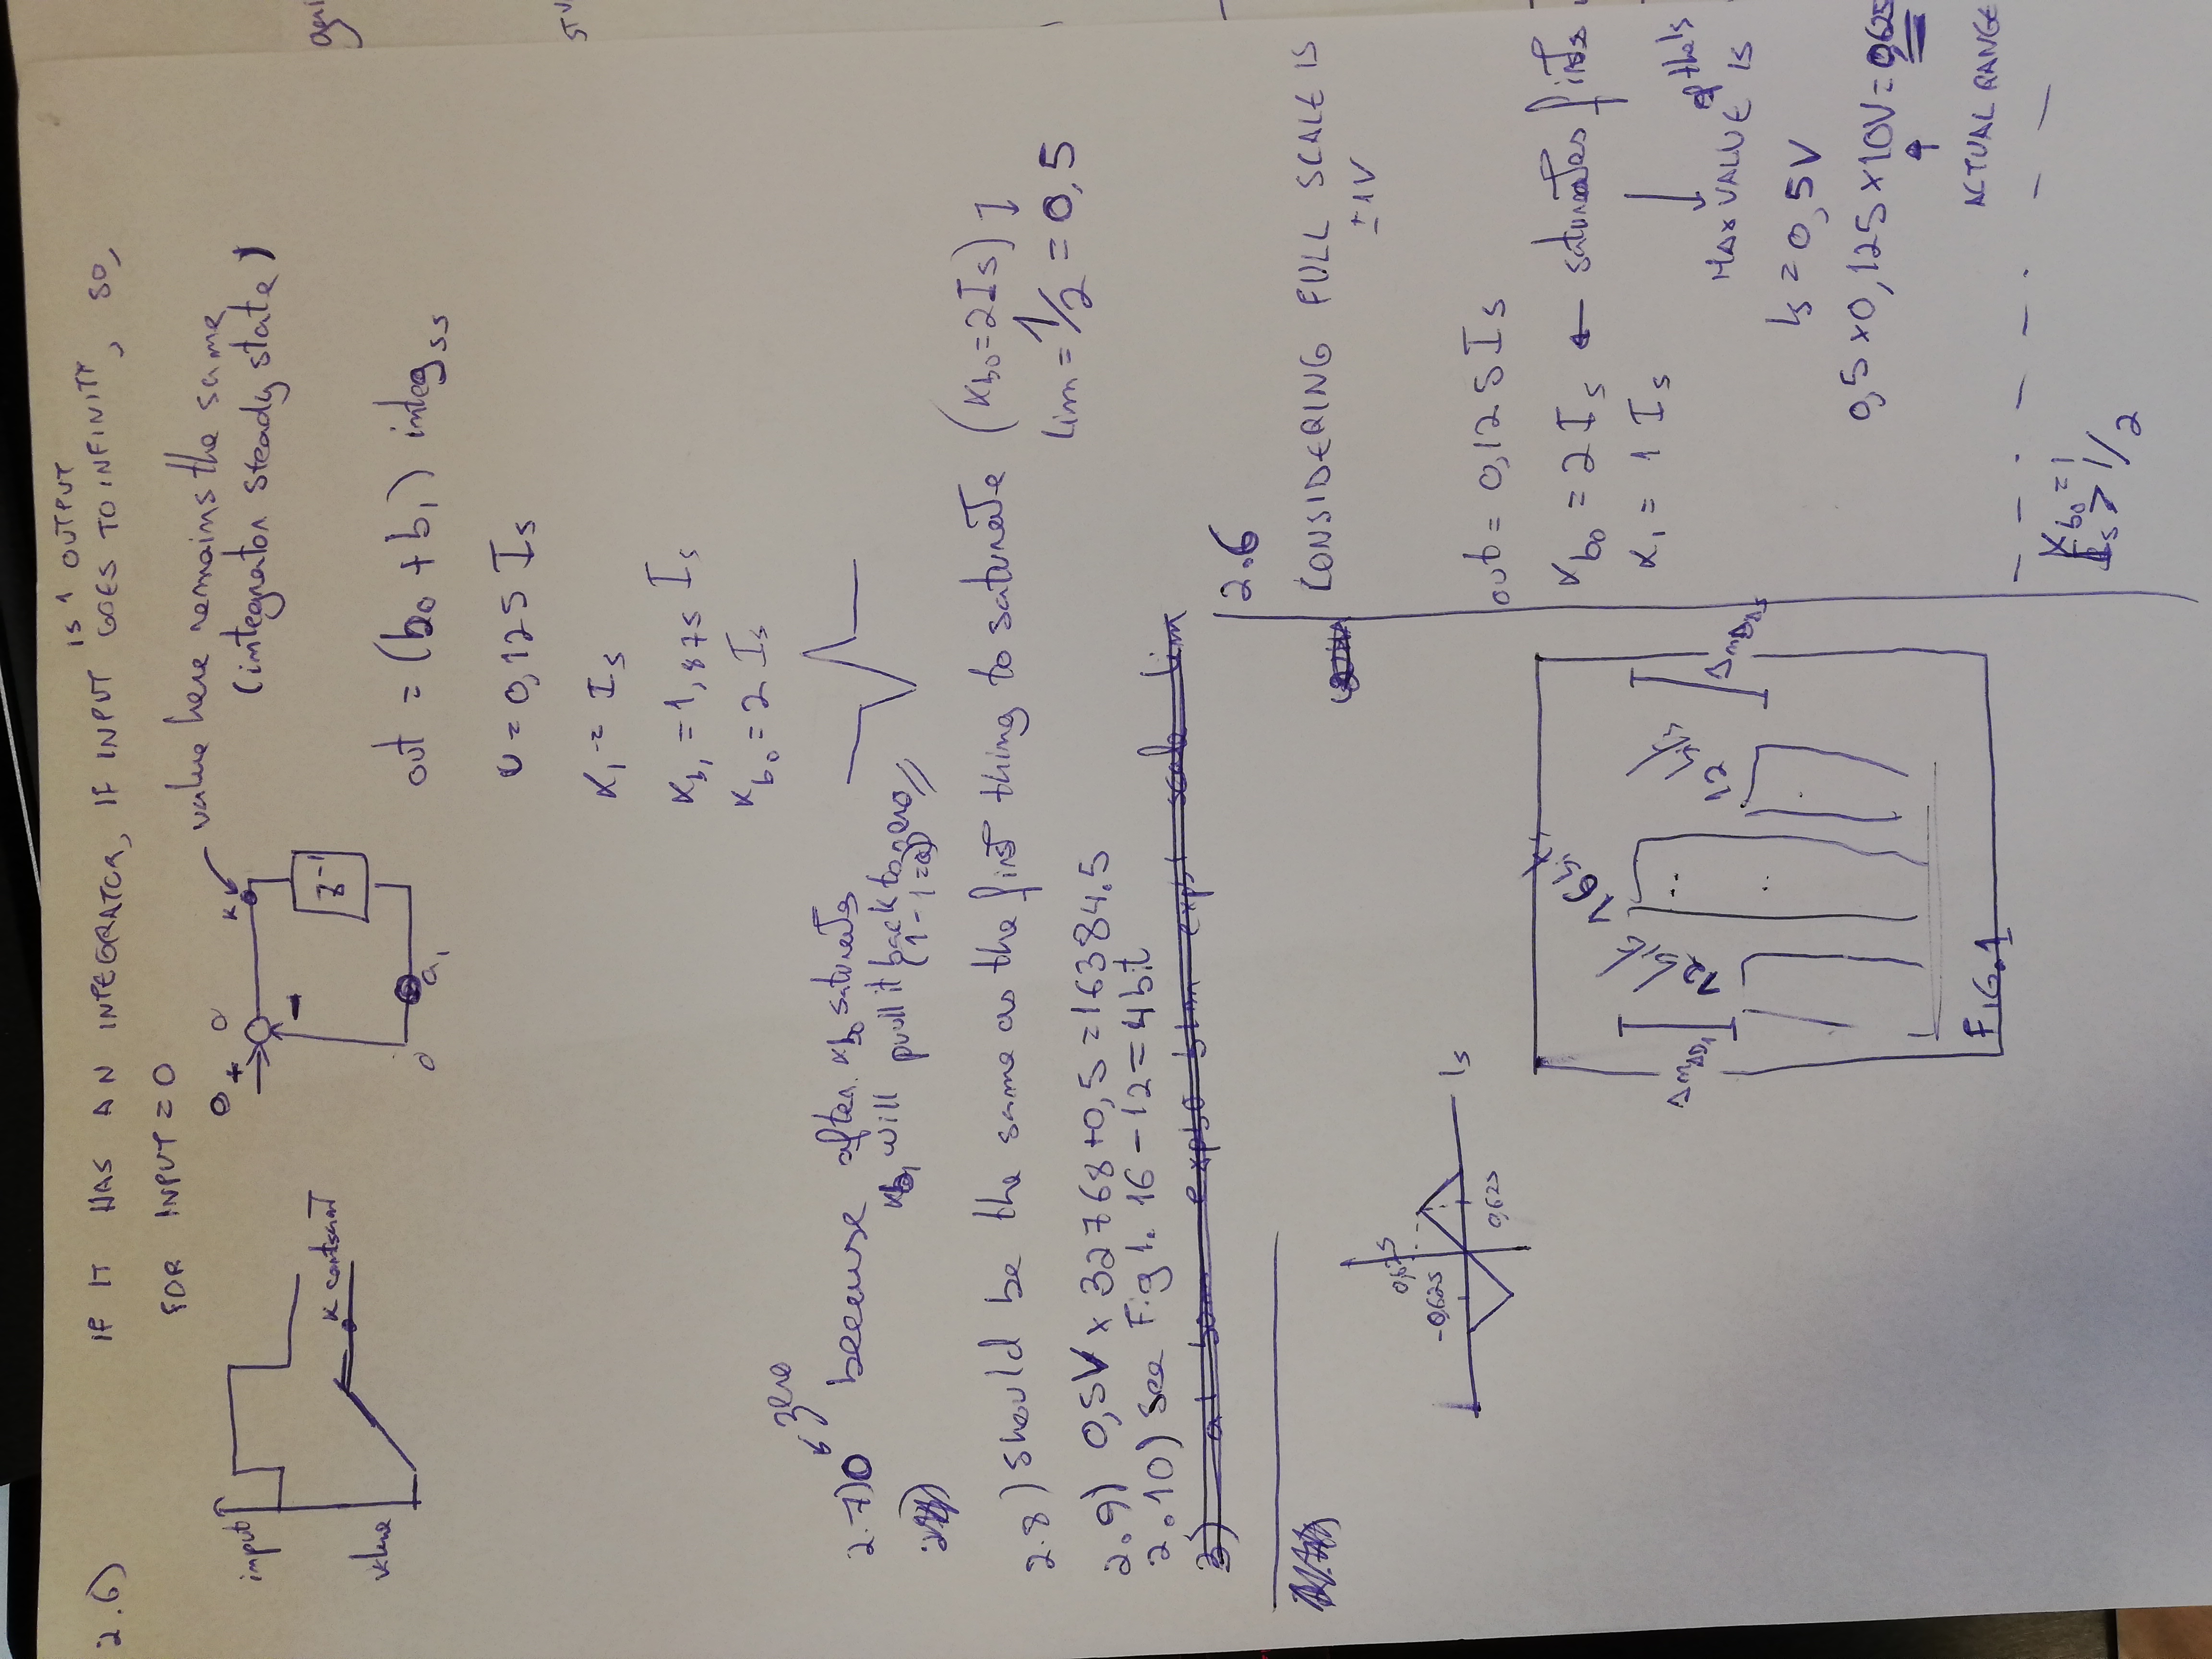 2.6)
IS 1 OUTPUT
IF IT HAS AN INTEGRATOR, IF INPUT GOES TO INFINITY, SO,
FOR INPUT = 0
input
value
K constant
0 + 0
K
value here remains the same
(integrator steady state)
-
Z⁻¹
0
a₁
out = (b₀ + b₁) integ ss
U = 0,125 Is
x₁ = Is
x b₁ = 1,875 Is
x b₀ = 2 Is
zero
2.7) 0 because after xb₀ saturates
xb₁ will pull it back to zero //
(1-1=0)
2.8) should be the same as the first thing to saturate (x b₀ = 2Is)
lim = 1/2 = 0,5
2.9) 0,5V x 32768 + 0,5 = 16384.5
2.10) See Fig 1. 16 - 12 = 4 bit
3) a1 b0m expb0 b1m expb1 scale lim
0,625
-0,625
0,625
Is
12 bit
16 bits
12 bits
FIG.1
2.6
CONSIDERING FULL SCALE IS
± 1V
out = 0,125 Is
x b₀ = 2 Is ← saturates first
x₁ = 1 Is
MAX VALUE of the Is IS
Is = 0,5V
0,5 x 0,125 x 10V = 0,625
ACTUAL RANGE
x b₀ = 1
Is > 1/2